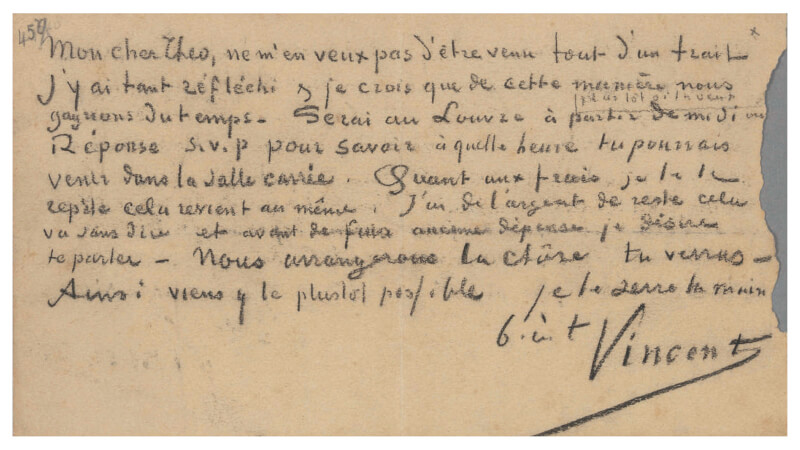 459
x
Mon cher Theo, ne m'en veux pas d'être venu tout d'un trait
J'y ai tant réfléchi & je crois que de cette manière nous
plus tot si tu veux
gagnons du temps. Serai au Louvre à partir de midi ou
Réponse s.v.p pour savoir à quelle heure tu pourrais
venir dans la salle carrée. Quant aux frais je te le
repète cela revient au même. J'ai de l'argent de reste cela
va sans dire et avant de faire aucune dépense je désire
te parler – Nous arrangerons la chôse tu verras –
Ainsi viens y le plustot possible je te serre la main
b. à t
Vincent